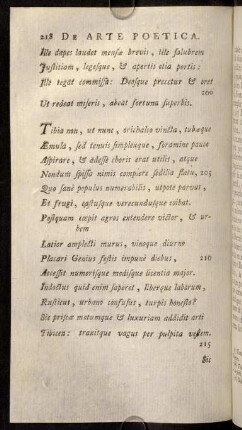 218 DE ARTE POETICA.
Ille dapes laudet mensæ brevis, ille salubrem
Justitiam, legesque, & apertis otia portis:
Ille tegat commissa: Deosque precetur & oret
200
Ut redeat miseris, abeat fortuna superbis.
Tibia non, ut nunc, orichalco vincta, tubæque
Æmula, sed tenuis simplexque, foramine pauco
Aspirare, & adesse choris erat utilis, atque
Nondum spissa nimis complere sedilia flatu, 205
Quo sanè populus numerabilis, utpote parvus,
Et frugi, castusque verecundusque coibat.
Postquam cœpit agros extendere victor, & ur-
bem
Latior amplecti murus, vinoque diurno
Placari Genius festis impunè diebus, 210
Accessit numerisque modisque licentia major.
Indoctus quid enim saperet, liberque laborum,
Rusticus, urbano confusus, turpis honesto?
Sic priscæ motumque & luxuriam addidit arti
Tibicen: traxitque vagus per pulpita vestem.
215
Sic